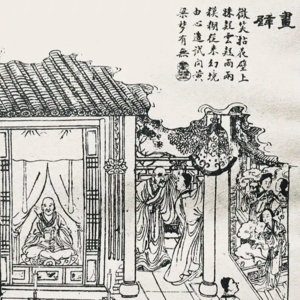 畫壁
微笑拈花壁上
姝疑雲疑雨兩
模糊從來幻境
由心造試問黃
粱夢有無